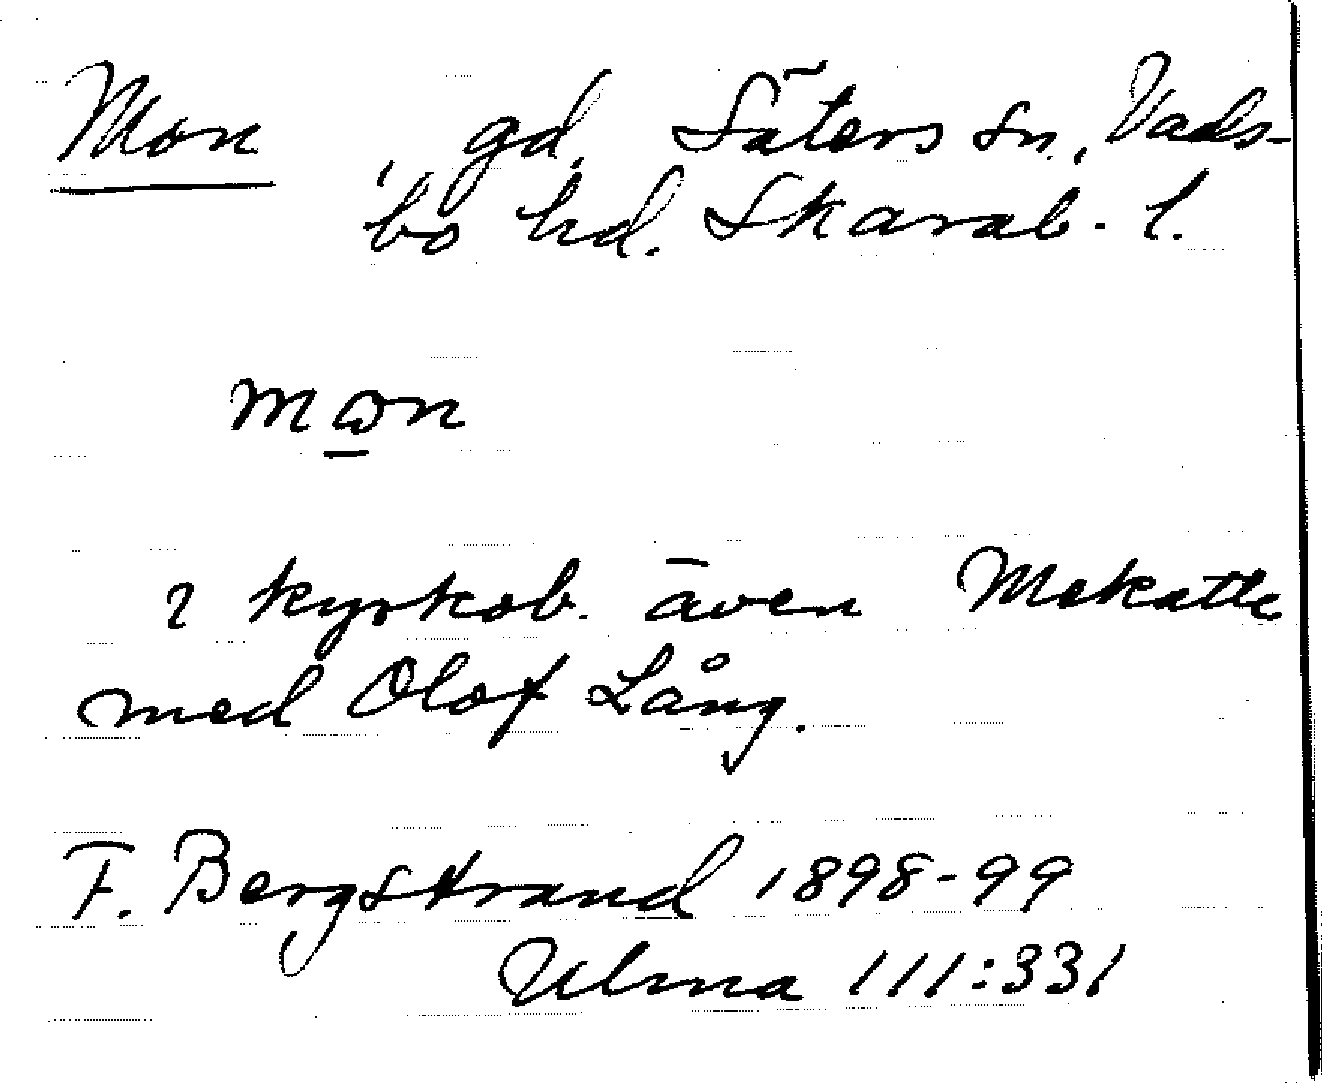 Mon, gd, Säters sn., Vads-
bo hd. Skarab. l.
mɷn
i kyrkob. även Mokatte
med Olof Lång.
F. Bergstrand 1898-99
Ulma 111:331